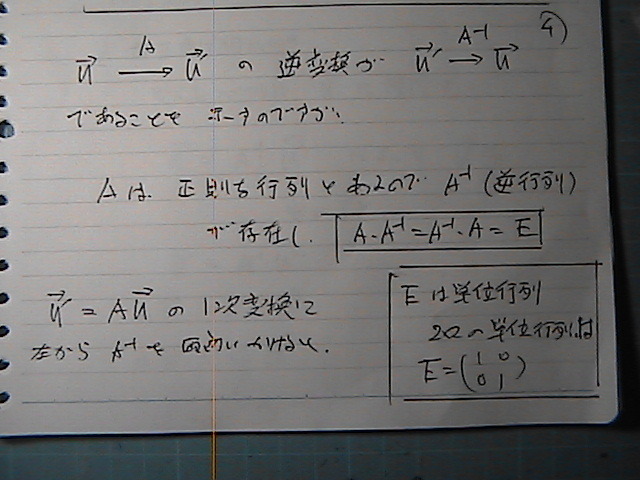 4)
u⃗ —A→ u⃗' の 逆変換が u⃗' —A⁻¹→ u⃗
であることを 示すのですが、
Aは、正則な行列とあるので A⁻¹ (逆行列)
が存在し、 A・A⁻¹ = A⁻¹・A = E
u⃗' = Au⃗ の 1次変換に
左から A⁻¹を 両辺に かけると、
Eは単位行列
2次の単位行列は
E = (1 0
0 1)